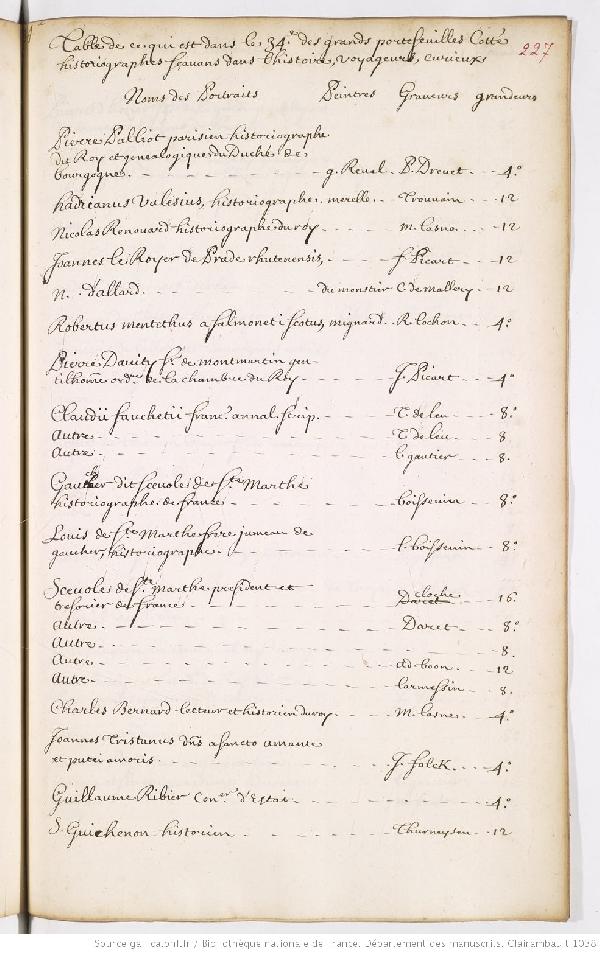 Table de ce qui est dans le 34.e des grands portefeuilles Cotté
historiographes sçavans dans l'histoire, voyageurs, curieux
227
Noms des Portraits Peintres Graveurs grandeurs
Pierre Palliot parisien historiographe
du Roy et genealogique du Duché de
bourgogne. g. Revel P. Drevet 4.o
hadrianus Valesius, historiographe. merelle. Trouvain 12
Nicolas Renouard historiographe du roy m. lasne 12
Joannes le Royer de Prade f. Picart 12
N. Dallard. du monstier C. de mallery 12
Robertus montethus a salmonet scotus, mignard. R. lochon. 4.o
Pierre Davity sr. de montmartin gen
tilhome ordre. de la chambre du Roy J. Picart 4.o
Claudii fauchetii franc. annal. scrip. T. de leu 8.o
autre T. de leu 8
autre. l. gautier 8.
Gaucher dit Scevole de Ste Marthe
historiographe de france boissevin 8.o
Louis de Ste Marthe frere jumeau de
gaucher, historiographe. l. boissevin 8.o
Scevole de Ste marthe president et
tresorier de france cloche Daret 16.
autre Daret 8.o
Autre. 8.
Autre ad. boon. 12
autre larmessin 8.
Charles Bernard lecteur et historien du roy. M. Lasne. 4.o
Joannes Tristanus dns a sancto amante
et putei amoris. J. folck 4.o
Guillaume Ribier Coner. d'Estat 4.o
S. Guichenon historien Thurneysen 12
Source gallica.bnf.fr / Bibliothèque nationale de France. Département des manuscrits. Clairambault 1038